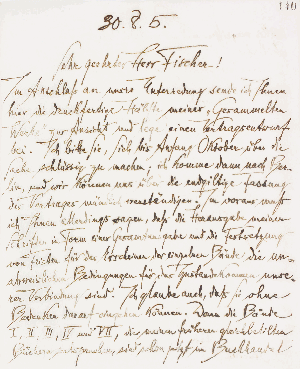 110
30. 8. 5.
Sehr geehrter Herr Fischer!
Im Anschluß an unsre Unterredung sende ich Ihnen
hier die druckfertige Hälfte meiner „Gesammelten
Werke" zur Ansicht und lege einen Vertragsentwurf
bei. Ich bitte Sie, sich bis Anfang Oktober über die
Sache schlüssig zu machen; ich komme dann nach Ber-
lin, und wir können uns über die endgiltige Fassung
des Vertrages mündlich verständigen; im voraus muß
ich Ihnen allerdings sagen, daß die Herausgabe meiner
Schriften in Form einer Gesamtausgabe und die Festsetzung
von Fristen für das Erscheinen der einzelnen Bände die un-
Bedingungen für das Zustandekommen unsr
er Verbindung sind. Ich glaube auch, daß Sie ohne
Bedenken darauf eingehen können. Denn die Bände
I, II, III, IV und VII, die meinen früheren
Büchern entsprechen, sind schon jetzt im Buchhandel